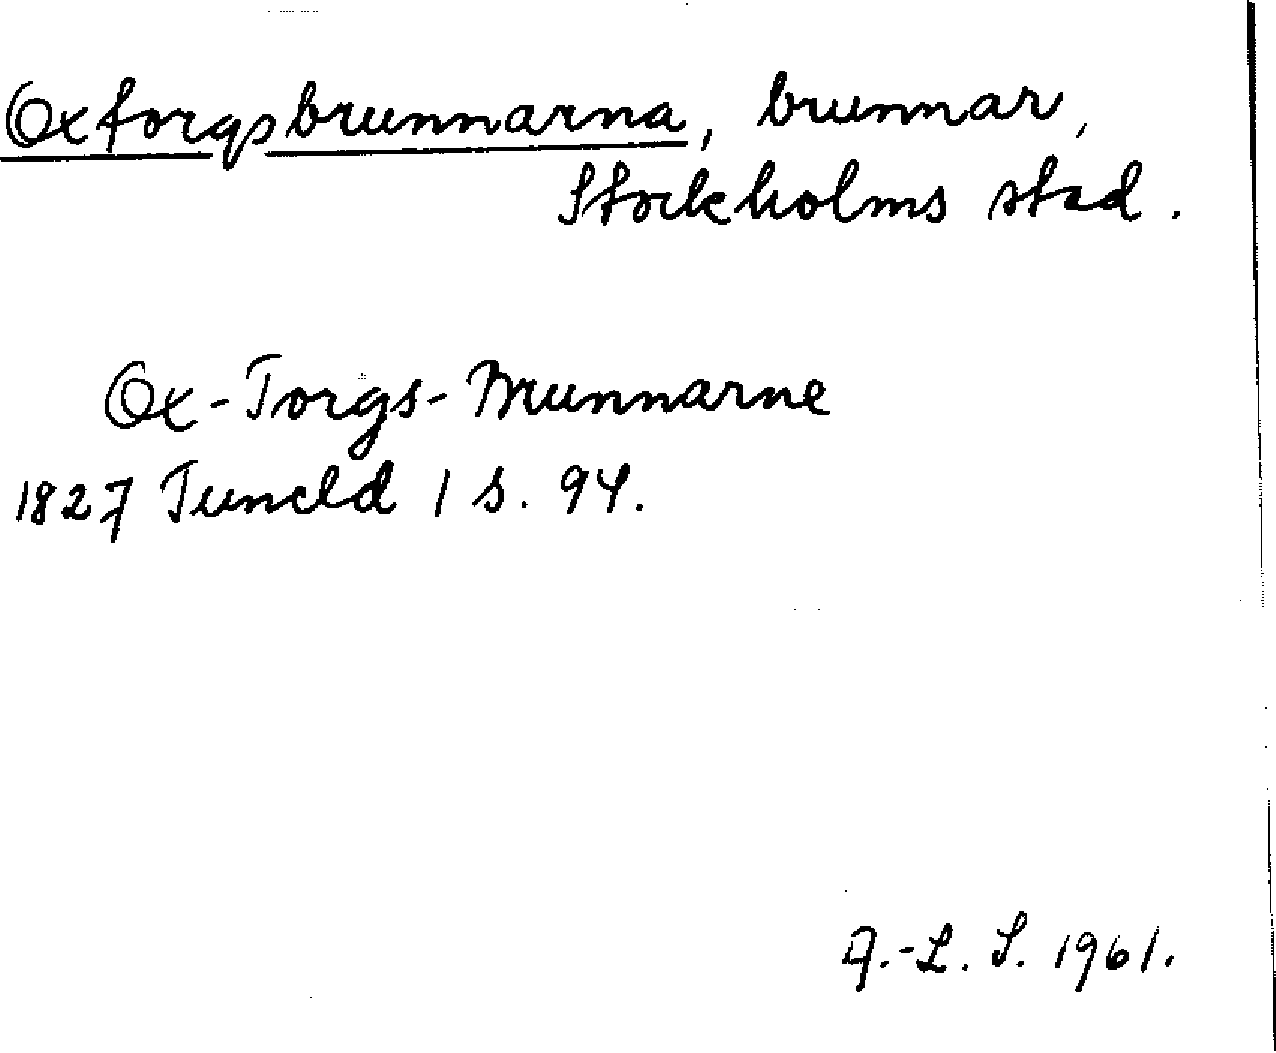 Oxtorgsbrunnarna, brunnar,
Stockholms stad.
Ox-Torgs-Brunnarne
1827 Tuneld 1 s. 94.
A.-L. S. 1961.